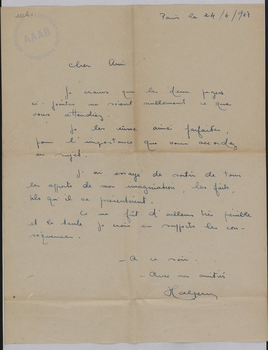 Paris le 24/6/
AAAB
Cher Ami
Je crains que les deux pages
ci-jointes ne soient nullement ce que
vous attendiez.
Je les ai ainsi
pour l'importance que vous accordez
au sujet
J'ai essayé de sortir de tous
les aspects de nos imaginations, les faits
tels qu'il se présentent.
Ce ne fût d'ailleurs très pénible
et la seule je crois en supporte les con-
séquences.
- A ce soir.
- Avec mes amitiés